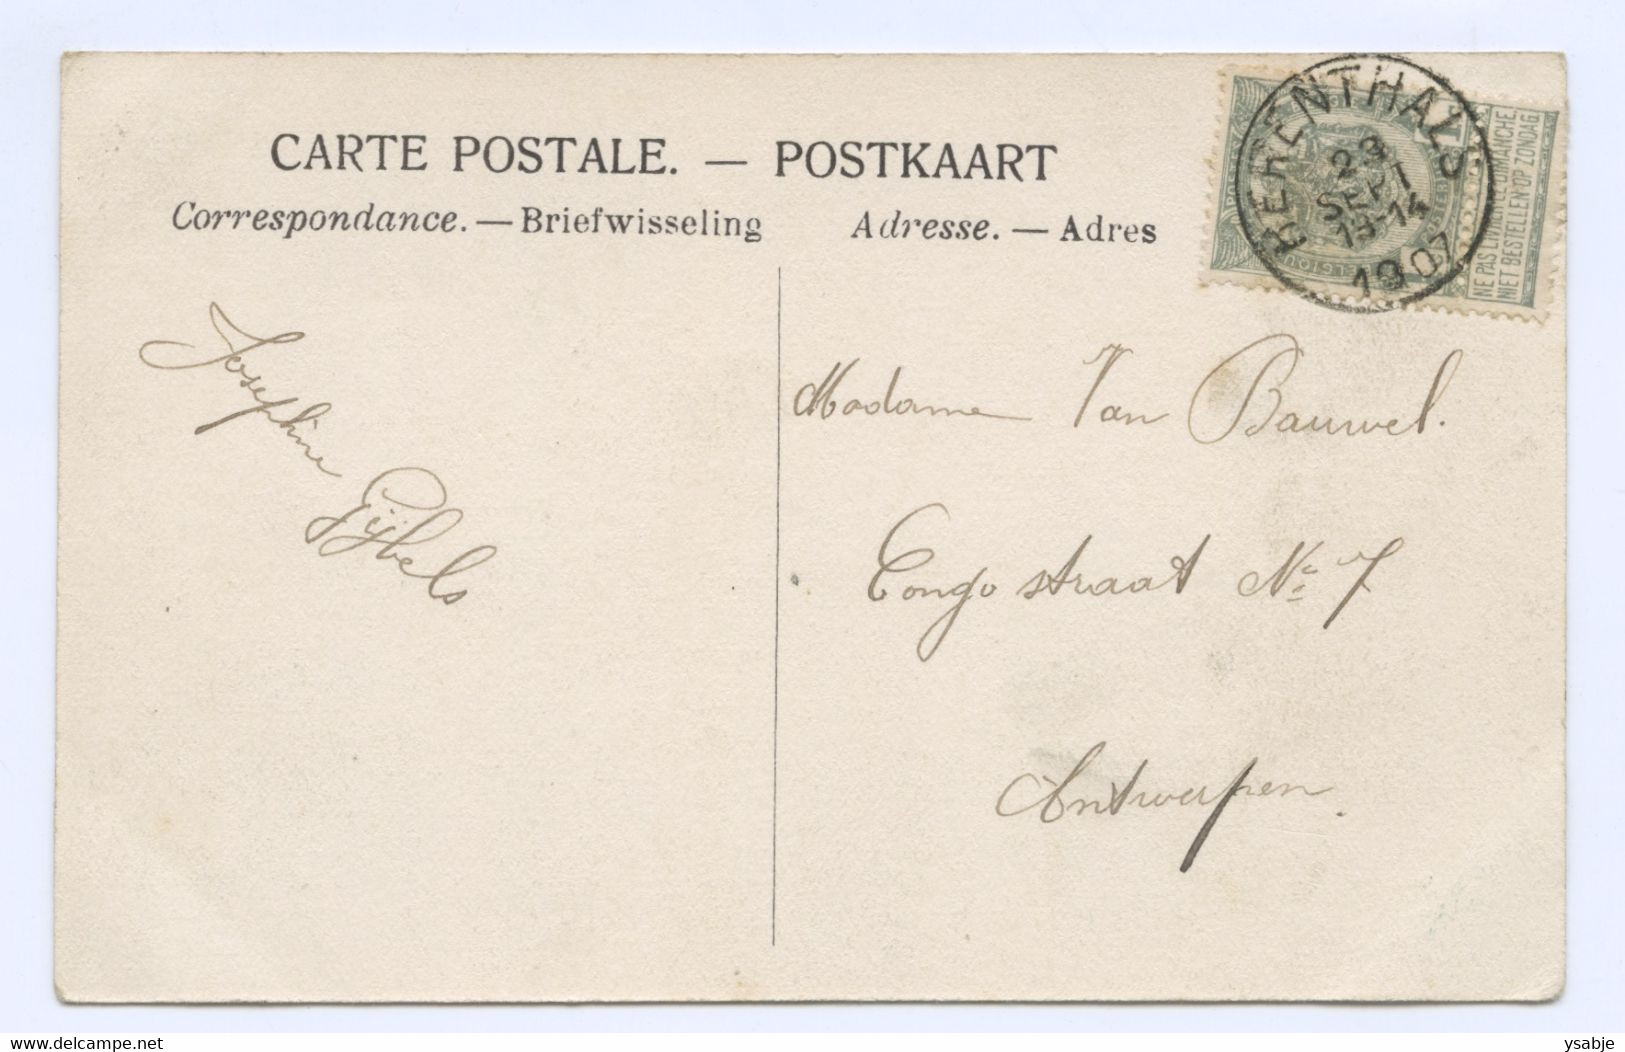 CARTE POSTALE. — POSTKAART
Correspondance. — Briefwisseling
Adresse. — Adres
HERENTHALS
SEPT
13-14
1907
NE PAS LIVRER LE DIMANCHE
NIET BESTELLEN OP ZONDAG
Josephine
Gijbels
Madame Van Bauwel.
Congo straat No 7
Antwerpen.
www.delcampe.net
ysabje